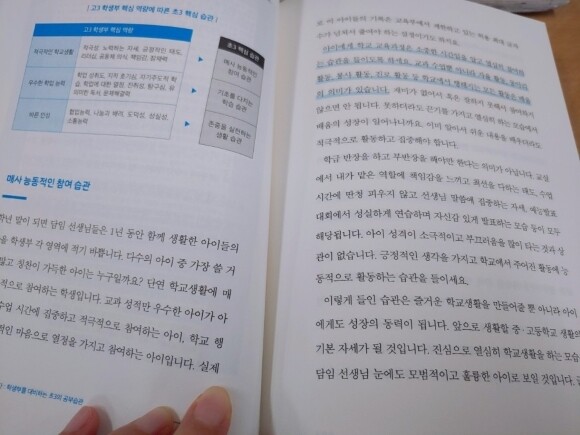 | 고3 학생부 핵심 역량에 따른 초3 핵심 습관 |
고3 학생부 핵심 역량
초3 핵심 습관
적극적인 학교생활
적극성, 노력하는 자세, 긍정적인 태도,
리더십, 공동체 의식, 책임감, 잠재력
매사 능동적인
참여 습관
우수한 학업 능력
학업 성취도, 지적 호기심, 자기주도적 학
습, 학업에 대한 열정, 진취성, 탐구심, 유
의미한 독서, 문제해결력
기초를 다지는
학습 습관
바른 인성
협업능력, 나눔과 배려, 도덕성, 성실성,
소통능력
존중을 실천하는
생활 습관
매사 능동적인 참여 습관
학년 말이 되면 담임 선생님들은 1년 동안 함께 생활한 아이들의
을 학생부 각 영역에 적기 바쁩니다. 다수의 아이 중 가장 쓸 거
많고 칭찬이 가득한 아이는 누구일까요? 단연 학교생활에 매
적으로 참여하는 학생입니다. 교과 성적만 우수한 아이가 아
수업 시간에 집중하고 적극적으로 참여하는 아이, 학교 행
적인 마음으로 열정을 가지고 참여하는 아이입니다. 실제
학생부를 대비하는 초3의 공부습관
로 이 아이들의 기록은 교육부에서 제한하고 있는 허용 최대 글자
수가 넘쳐서 줄여야 하는 상황이기도 하지요.
아이에게 학교 교육과정은 소중한 시간임을 알고 열심히 참여하
는 습관을 들이도록 하세요. 교과 수업뿐 아니라 자율 활동, 동아리
활동, 봉사 활동, 진로 활동 등 학교에서 행해지는 모든 활동은 배움
의 의미가 있습니다. 재미가 없어서 혹은 잘하지 못해서 참여하지
않으면 안 됩니다. 못하더라도 끈기를 가지고 열심히 하는 모습에서
배움의 성장이 일어나니까요. 이미 알아서 쉬운 내용을 배우더라도
적극적으로 활동하고 집중해야 합니다.
학급 반장을 하고 부반장을 해야만 한다는 의미가 아닙니다. 교실
에서 내가 맡은 역할에 책임감을 느끼고 최선을 다하는 태도, 수업
시간에 딴청 피우지 않고 선생님 말씀에 집중하는 자세, 배움발표
대회에서 성실하게 연습하며 자신감 있게 발표하는 모습 등이 모두
해당됩니다. 아이 성격이 소극적이고 부끄러움을 많이 타는 것과 상
관이 없습니다. 긍정적인 생각을 가지고 학교에서 주어진 활동에 능
동적으로 활동하는 습관을 들이세요.
이렇게 들인 습관은 즐거운 학교생활을 만들어줄 뿐 아니라 아이
에게도 성장의 동력이 됩니다. 앞으로 생활할 중·고등학교 생활의
기본 자세가 될 것입니다. 진심으로 열심히 학교생활을 하는 모습
담임 선생님 눈에도 모범적이고 훌륭한 아이로 보일 것입니다.